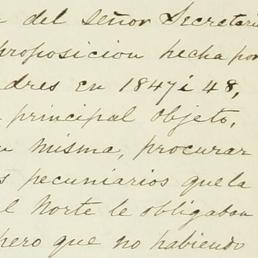 del señor Secretari
proposicion hecha por
dres en 1847 i 48,
principal objeto,
misma, procurar
s pecuniarios que la
l Norte le obligaban
pero que no habiendo